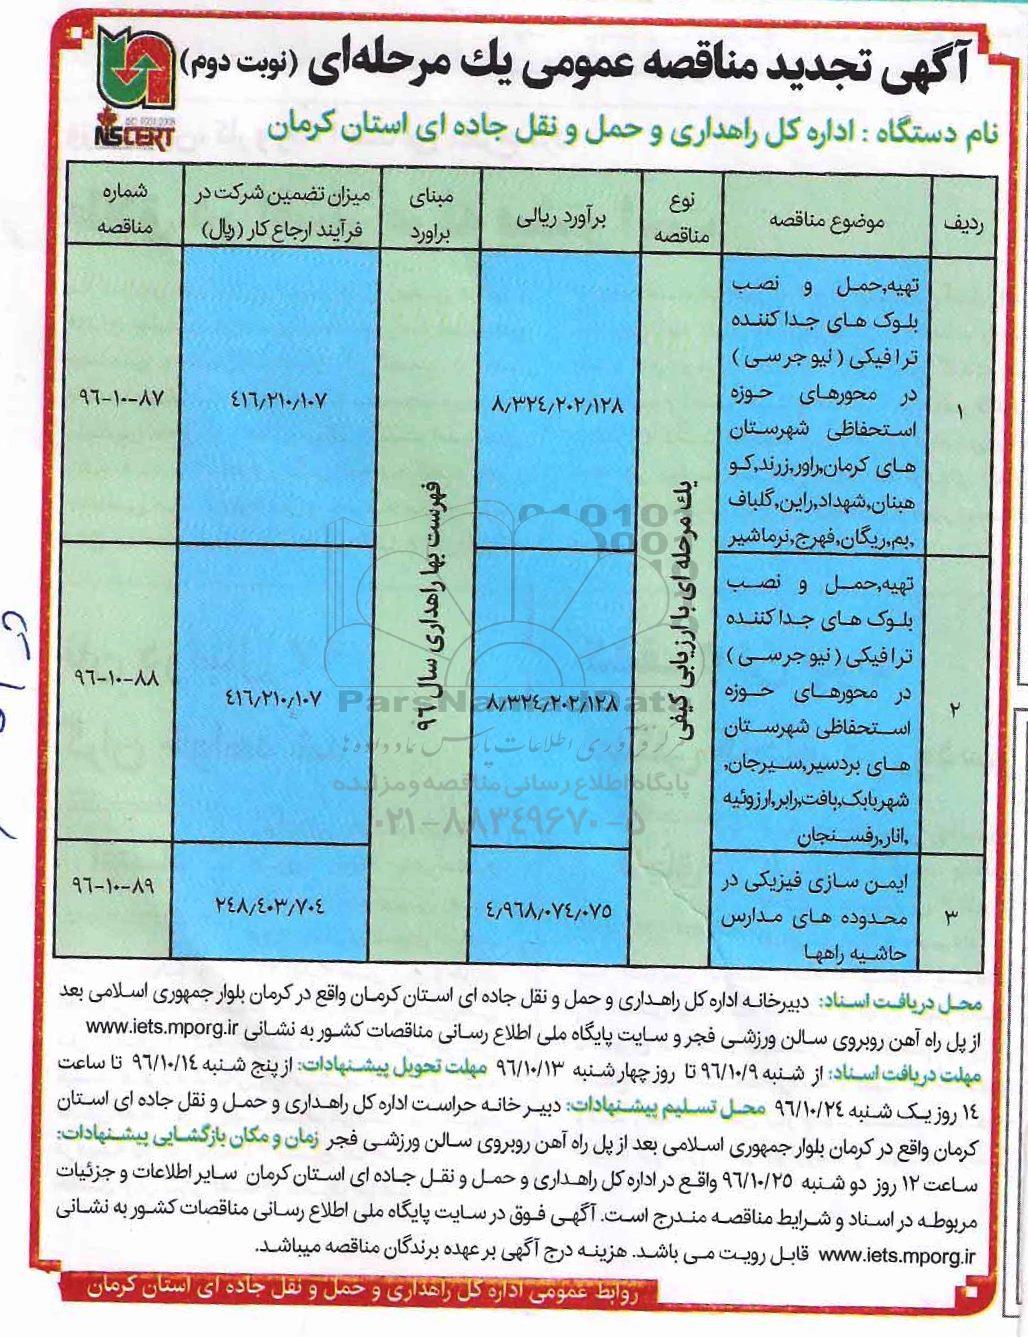 آگهی تجدید مناقصه عمومی یك مرحله‌ای (نوبت دوم)
ISO 9001:2008
NSCERT
نام دستگاه : اداره کل راهداری و حمل و نقل جاده ای استان کرمان
ردیف
موضوع مناقصه
نوع
مناقصه
برآورد ریالی
مبنای
براورد
میزان تضمین شرکت در
فرآیند ارجاع کار (ریال)
شماره
مناقصه
۱
تهیه,حمل و نصب
بلوک های جدا کننده
ترافیکی ( نیو جرسی )
در محورهای حوزه
استحفاظی شهرستان
های کرمان,راور,زرند,کو
هبنان,شهداد,راین,گلباف
,بم,ریگان,فهرج,نرماشیر
۸/۳۲٤/۲۰۲/۱۲۸
٤۱٦/۲۱۰/۱۰۷
۹٦-۱۰-۸۷
۲
تهیه,حمل و نصب
بلوک های جدا کننده
ترافیکی ( نیو جرسی )
در محورهای حوزه
استحفاظی شهرستان
های بردسیر,سیرجان,
شهربابک,بافت,رابر,ارزوئیه
,انار,رفسنجان
۸/۳۲٤/۲۰۲/۱۲۸
٤۱٦/۲۱۰/۱۰۷
۹٦-۱۰-۸۸
۳
ایمن سازی فیزیکی در
محدوده های مدارس
حاشیه راهها
٤/۹٦۸/۰۷٤/۰۷۵
۲٤۸/٤۰۳/۷۰٤
۹٦-۱۰-۸۹
یك مرحله ای با ارزیابی کیفی
فهرست بها راهداری سال ۹٦
ParsNamadData
مرکز فرآوری اطلاعات پارس نماد داده‌ها
پایگاه اطلاع رسانی مناقصه و مزایده
۰۲۱-۸۸۳٤۹٦۷۰-۵
محل دریافت اسناد: دبیرخانه اداره کل راهداری و حمل و نقل جاده ای استان کرمان واقع در کرمان بلوار جمهوری اسلامی بعد
از پل راه آهن روبروی سالن ورزشی فجر و سایت پایگاه ملی اطلاع رسانی مناقصات کشور به نشانی www.iets.mporg.ir
مهلت دریافت اسناد: از شنبه ۹٦/۱۰/۹ تا روز چهار شنبه ۹٦/۱۰/۱۳ مهلت تحویل پیشنهادات: از پنج شنبه ۹٦/۱۰/۱٤ تا ساعت
۱٤ روز یک شنبه ۹٦/۱۰/۲٤ محل تسلیم پیشنهادات: دبیر خانه حراست اداره کل راهداری و حمل و نقل جاده ای استان
کرمان واقع در کرمان بلوار جمهوری اسلامی بعد از پل راه آهن روبروی سالن ورزشی فجر زمان و مکان بازگشایی پیشنهادات:
ساعت ۱۲ روز دو شنبه ۹٦/۱۰/۲۵ واقع در اداره کل راهداری و حمل و نقل جاده ای استان کرمان سایر اطلاعات و جزئیات
مربوطه در اسناد و شرایط مناقصه مندرج است. آگهی فوق در سایت پایگاه ملی اطلاع رسانی مناقصات کشور به نشانی
www.iets.mporg.ir قابل رویت می باشد. هزینه درج آگهی بر عهده برندگان مناقصه میباشد.
روابط عمومی اداره کل راهداری و حمل و نقل جاده ای استان کرمان